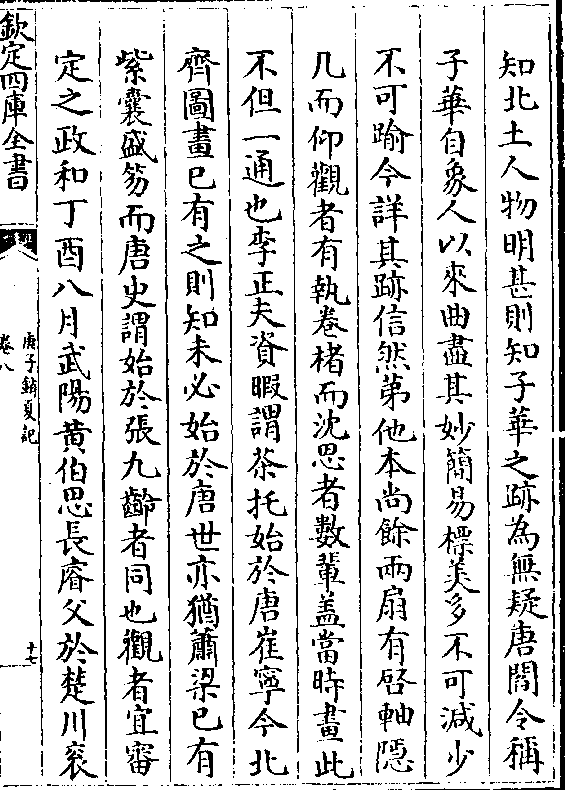 知北土人物明甚則知子華之跡為無疑唐閻令稱
子華自象人以來曲盡其妙簡易標美多不可減少
不可踰今詳其跡信然第他本尚餘兩扇有啓軸隱
几而仰觀者有執卷楮而沈思者數輩盖當時畫此
不但一通也李正夫資暇謂茶托始於唐崔寧今北
齊圖畫已有之則知未必始於唐世亦猶蕭梁已有
紫囊盛笏而唐史謂始於張九齡者同也觀者宜審
定之政和丁酉八月武陽黃伯思長睿父於楚川衮
欽定四庫全書
庚子銷夏記
卷八
十七